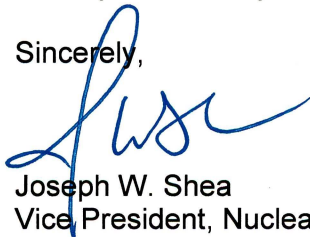 Sincerely,
Joseph W. Shea
Vice President, Nuclea